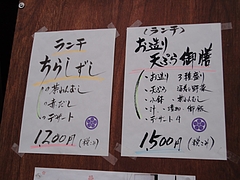 ランチ
ちらしずし
・茶わんむし
・赤だし
・デザート
1,200円(税込)
(ランチ)
お造り
天ぷら御膳
・お造り 3種盛り
・天ぷら 海老・野菜
・小鉢 ・茶わんむし
・汁・漬物・御飯
・デザート
1,500円(税込)